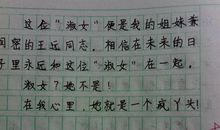 这位“淑女”便是我的姐妹兼
闺密的王远同志，相信在未来的日
子里永远和这位“淑女”在一起。
淑女？她不是！
在我心里，她就是一个疯丫头！